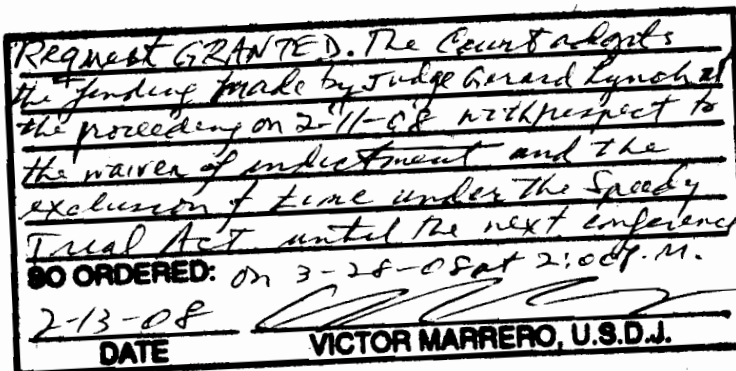 Request GRANTED. The Court adopts
the finding made by Judge Gerard Lynch at
the proceeding on 2-11-08 with respect to
the waiver of indictment and the
exclusion of time under the Speedy
Trial Act until the next conference
SO ORDERED: on 3-28-08 at 2:00 p.m.
2-13-08
DATE VICTOR MARRERO, U.S.D.J.